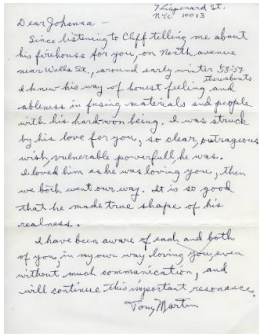 7 Lispenard St.
NYC 10013
Dear Johanna –
Since listening to Cliff telling me about
his firehouse for you, on North avenue
near Wells St., around early winter 53-57.
thereabouts
I knew his way of honest feeling and
ableness in fusing materials and people
with his hard-won being. I was struck
by his love for you, so clear, outrageous
wish, vulnerable powerfull, he was.
I loved him as he was loving you, then
we both went our way. It is so good
that he made true shape of his
realness.
I have been aware of each and both
of you, in my own way loving you, even
without much communication, and
will continue this important resonance.
Tony Martin